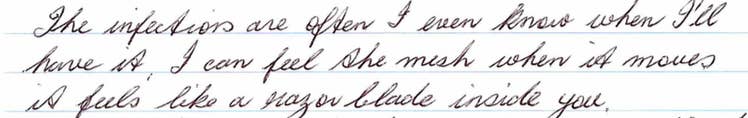 The infections are often I even know when I'll
have it, I can feel the mesh when it moves
it feels like a razor blade inside you.